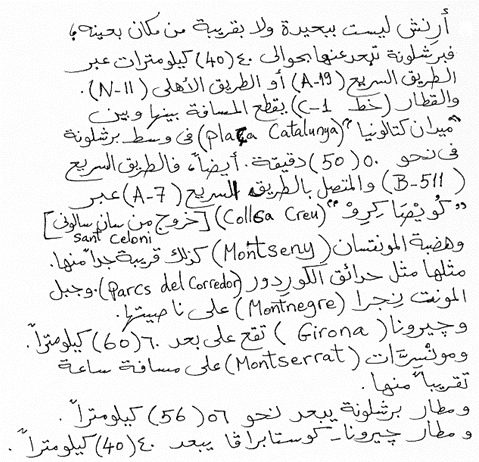 أرنش ليست ببعيدة ولا بقريبة من مكان بعينه،
فبرشلونة تبعد عنها بحوالى ٤٠ (40) كيلومترات عبر
الطريق السريع (A-19) أو الطريق الأهلى (N-11).
والقطار (خط C-1) يقطع المسافة بينها وبين
"ميدان كتالونيا" (Plaça Catalunya) فى وسط برشلونة
فى نحو ٥٠ (50) دقيقة. أيضاً، فالطريق السريع
(B-511) والمتصل بالطريق السريع (A-7) عبر
"كُويْصَا كِرِوْ" (Collsa Creu) [خروج من سان سالونى]
Sant Celoni
وهضبة المونتسان (Montseny) كذلك قريبة جداً منها.
مثلها مثل حدائق الكُورِدور (Parcs del Corredor). وجبل
المونت نجرا (Montnegre) على ناصيتها.
وچيرونا (Girona) تقع على بعد ٦٠ (60) كيلومتراً.
ومونْسِرَّات (Montserrat) على مسافة ساعة
تقريباً منها.
ومطار برشلونة يبعد نحو ٥٦ (56) كيلومتراً.
ومطار چيرونا-كوستابراڤا يبعد ٤٠ (40) كيلومتراً.